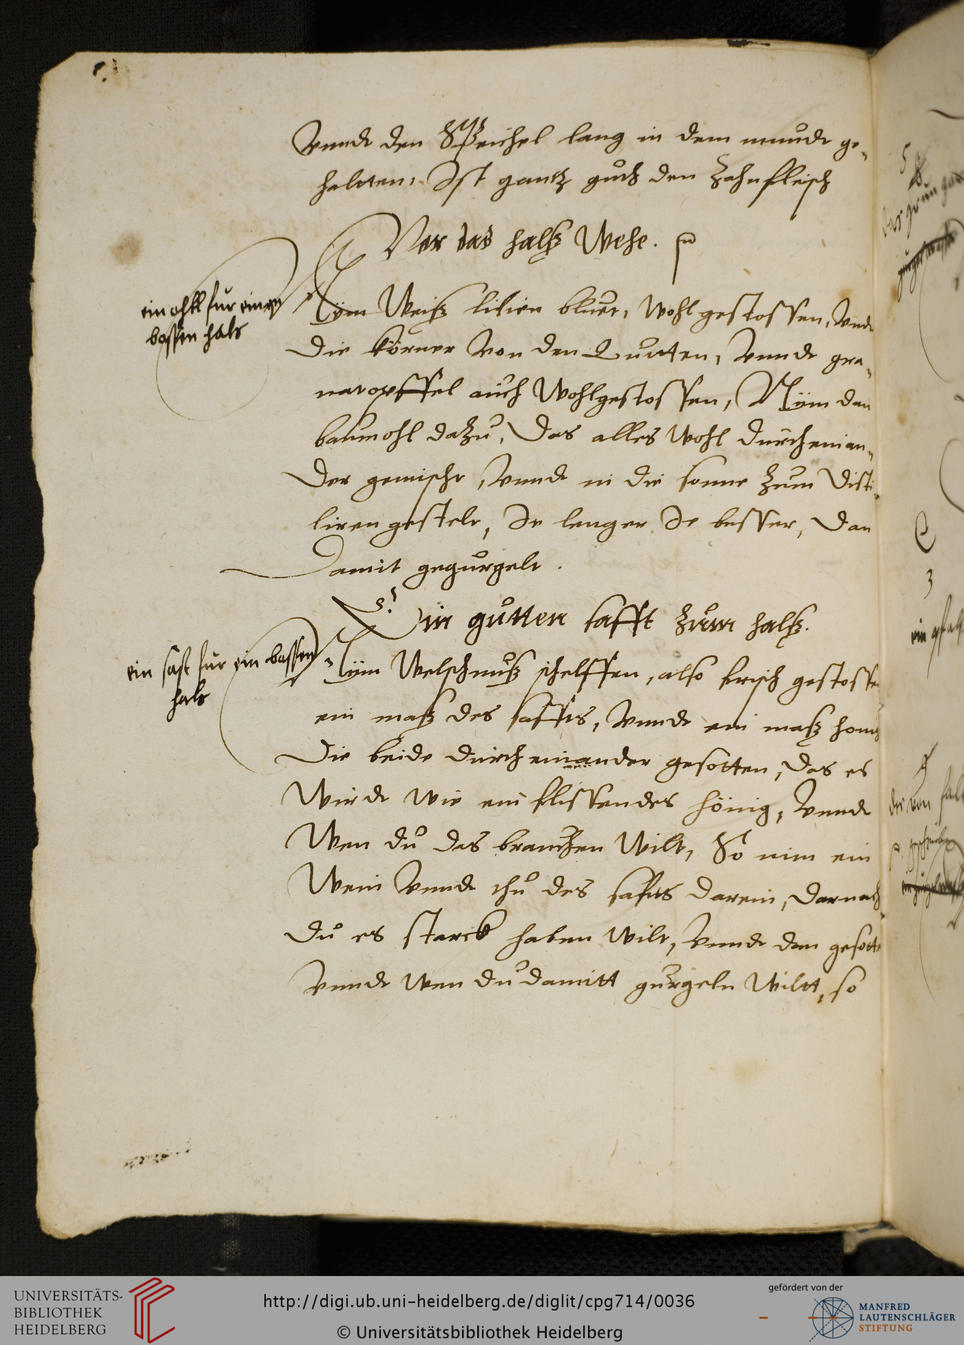 vnnde den Speichel lang in dem munde ge-
haltten, Ist gantz gůtt den Zahnfleisch
Vor das halß wehe.
ein ohll fur einen
bossen hals
Nÿm weiß lilien bluet, wohl gestossen, vnnd
die körner von den Quitten, vnnde gra-
natopffel auch wohlgestossen, Nÿm dan
baumohl dazu, das alles wohl durcheinan-
der gemischt, vnnde in die sonne zum disti-
liren gestelt, Je lenger Je besser, dan
damit gegurgelt.
Ein gůtten safft zům halß.
ein saft fur ein bossen
hals
Nÿm welschnuß schelffen, also frisch gestosse
ein maß des saffts, vnnde ein maß honig
die beide durcheinander gesotten, das es
wirde wie ein flissendes hönig, vnnde
wen du das brauchen wilt, So nim ein
wein vnnde thu des saffts darein, darnach
du es starck haben wilt, vnnde dan gesotte
vnnde wen du damitt gurgeln wiltt, so
UNIVERSITÄTS-
BIBLIOTHEK
HEIDELBERG
http://digi.ub.uni-heidelberg.de/diglit/cpg714/0036
© Universitätsbibliothek Heidelberg
gefördert von der
MANFRED
LAUTENSCHLÄGER
STIFTUNG